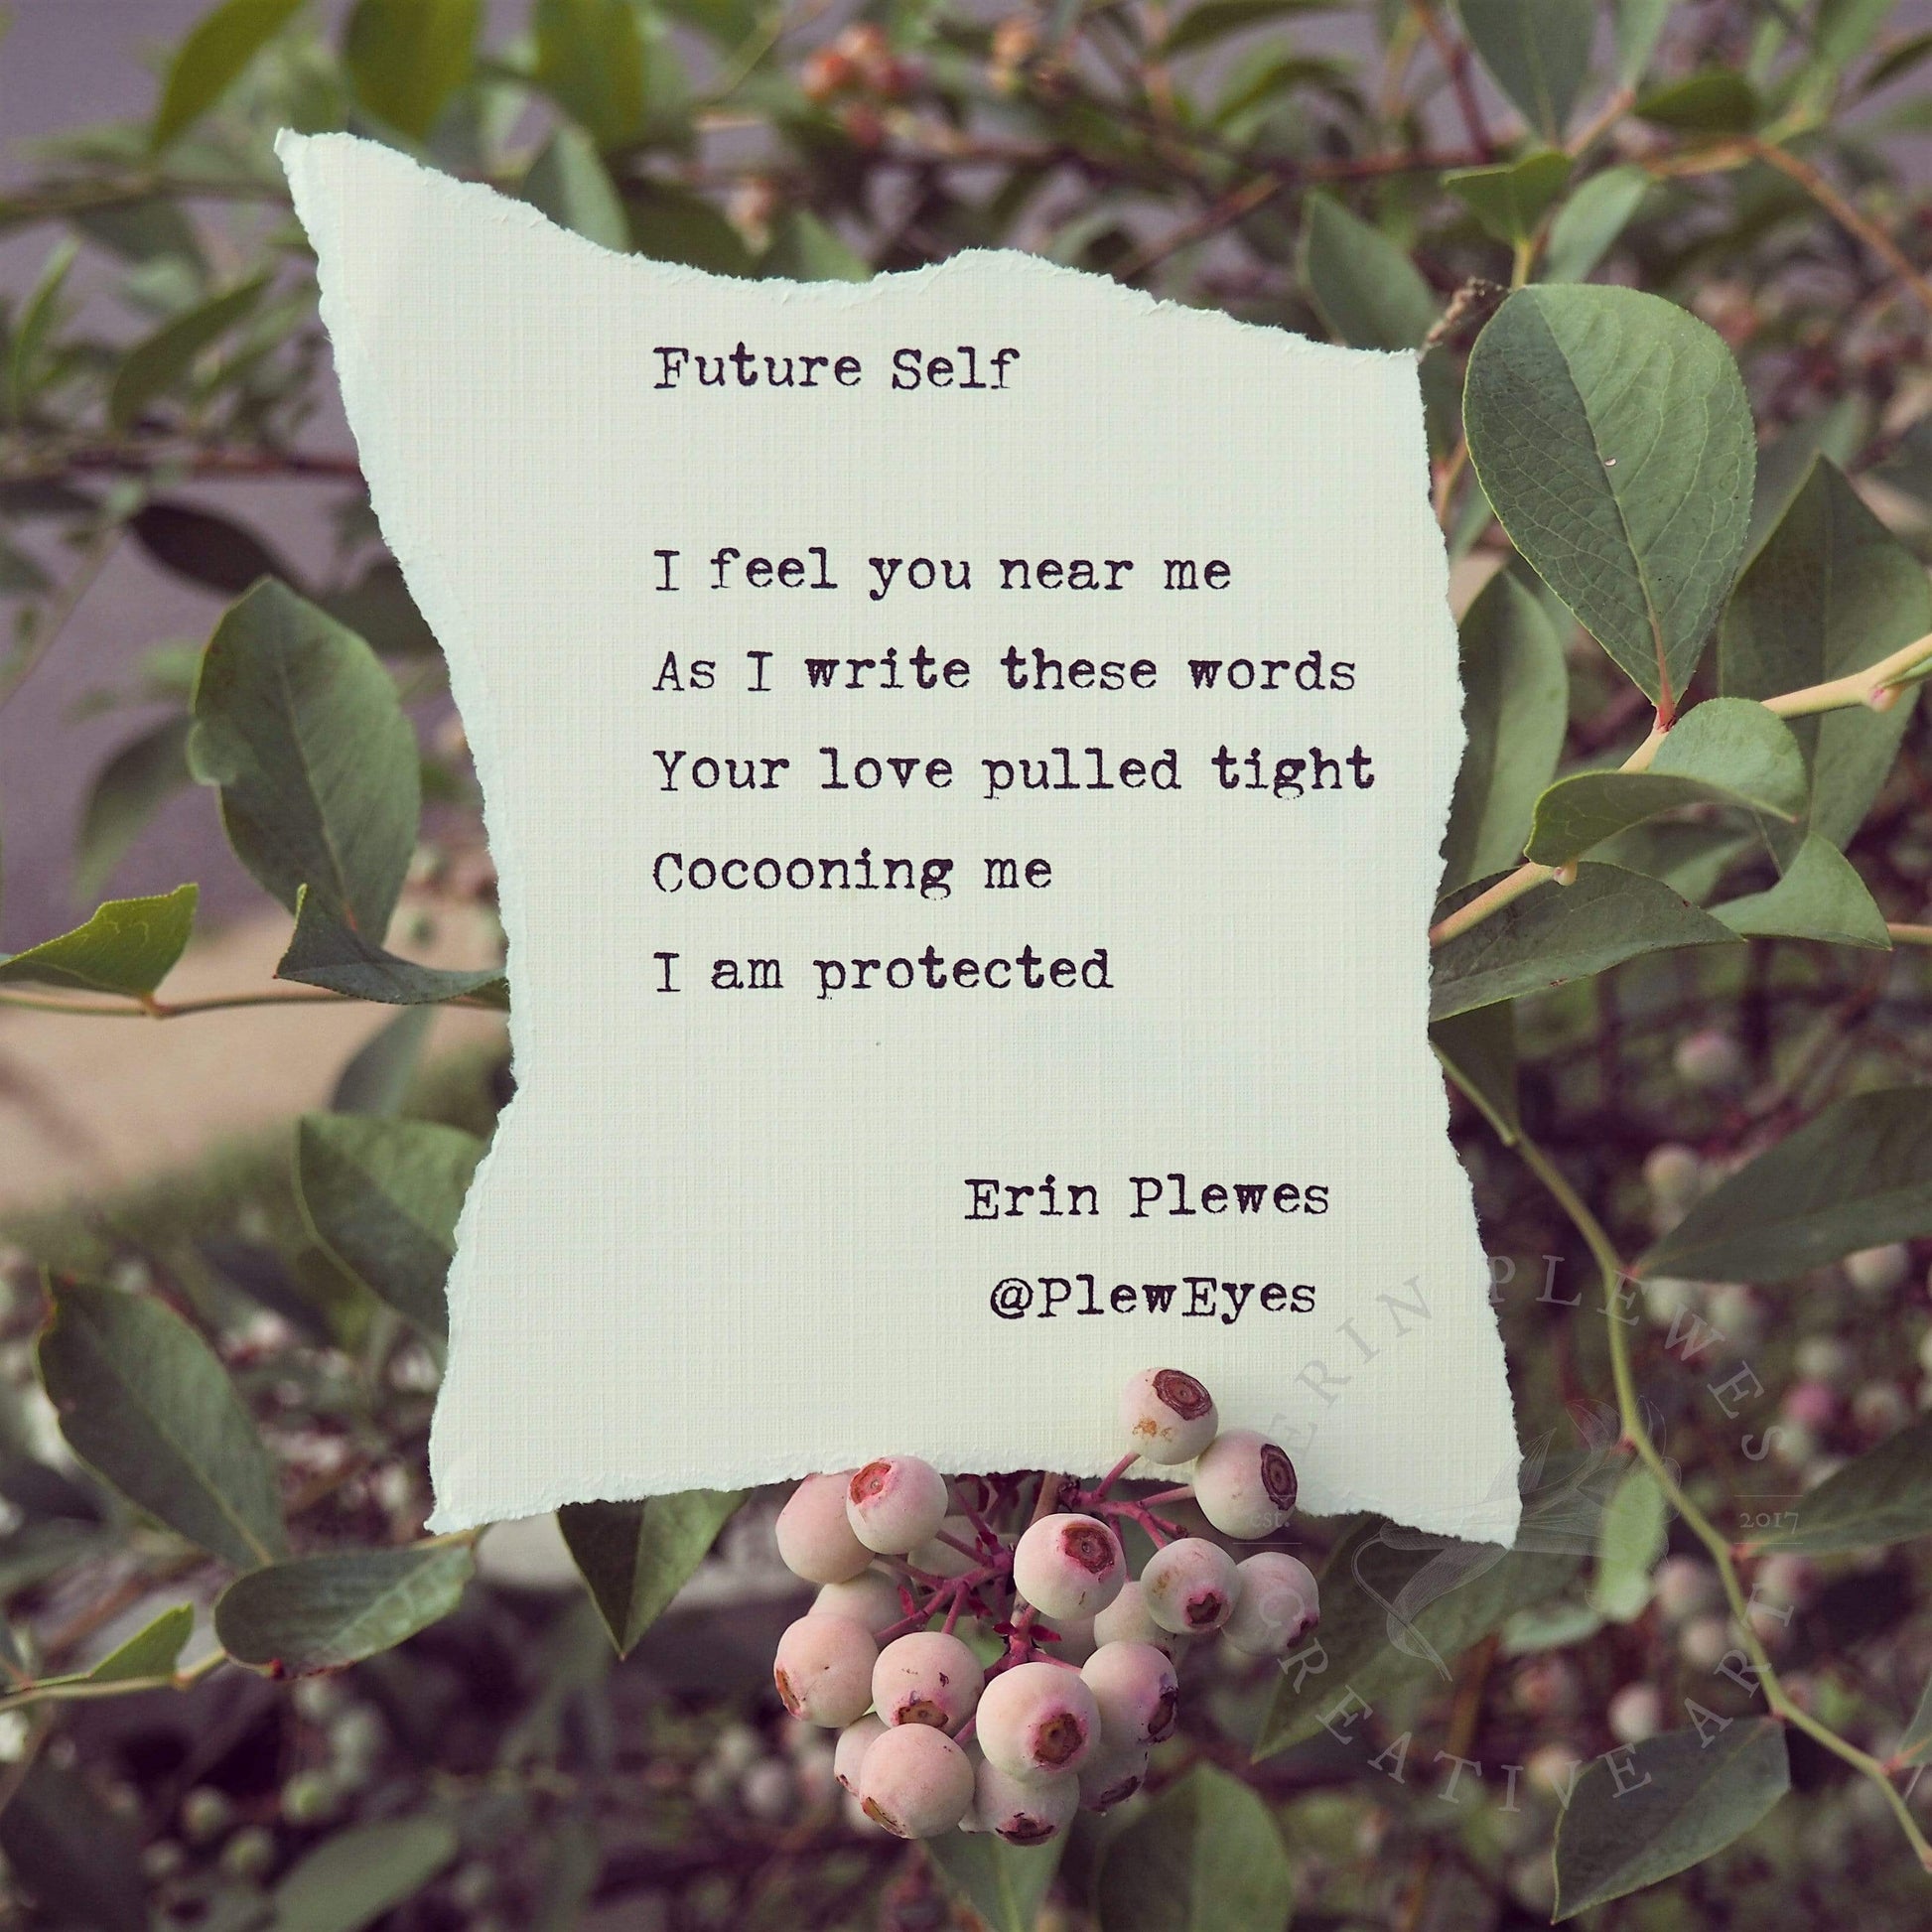 Future Self
I feel you near me
As I write these words
Your love pulled tight
Cocooning me
I am protected
Erin Plewes
@PlewEyes
ERIN PLEWES
est. 2017
CREATIVE ART